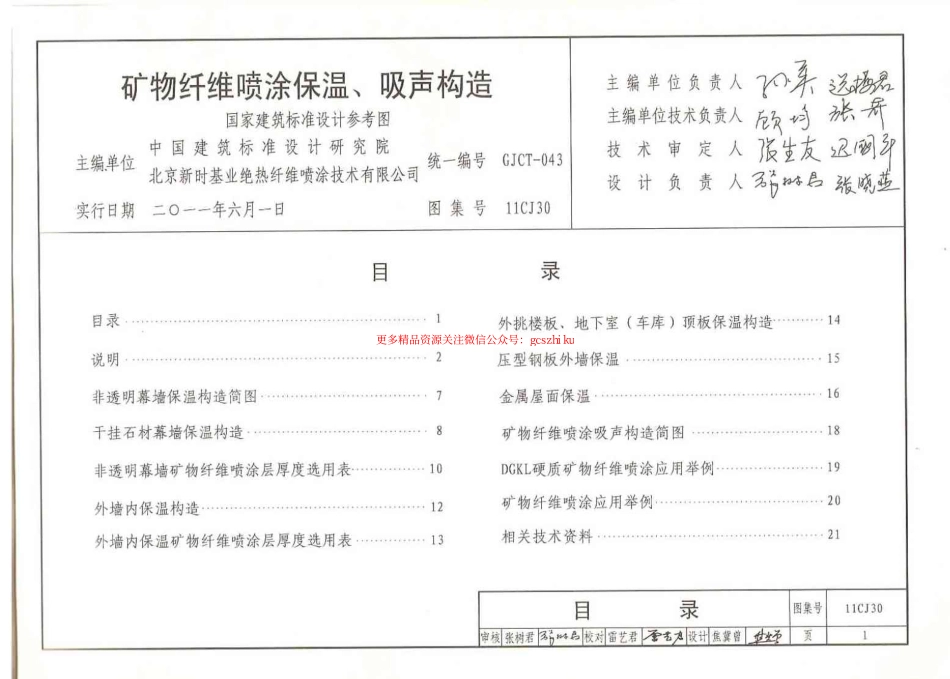 矿物纤维喷涂保温、吸声构造
国家建筑标准设计参考图
主编单位 中国建筑标准设计研究院
北京新时基业绝热纤维喷涂技术有限公司
统一编号 GJCT-043
实行日期 二〇一一年六月一日
图集号 11CJ30
主编单位负责人
主编单位技术负责人
技术审定人
设计负责人
目 录
目录 1
说明 2
非透明幕墙保温构造简图 7
干挂石材幕墙保温构造 8
非透明幕墙矿物纤维喷涂层厚度选用表 10
外墙内保温构造 12
外墙内保温矿物纤维喷涂层厚度选用表 13
外挑楼板、地下室(车库)顶板保温构造 14
压型钢板外墙保温 15
金属屋面保温 16
矿物纤维喷涂吸声构造简图 18
DGKL硬质矿物纤维喷涂应用举例 19
矿物纤维喷涂应用举例 20
相关技术资料 21
更多精品资源关注微信公众号：gcszhiku
目 录 图集号 11CJ30
审核 张树君 校对 雷艺君 设计 焦冀曾 页 1